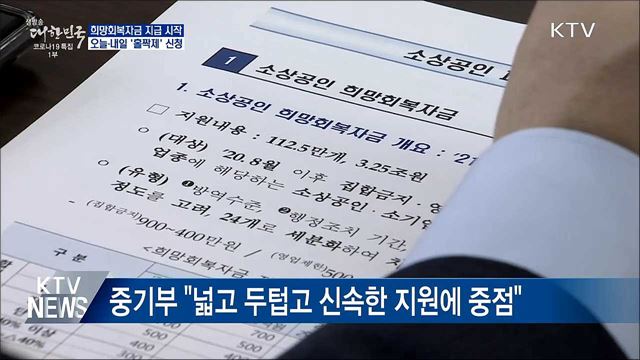 생방송
대한민국
코로나19 특집
1부
희망회복자금 지급 시작
오늘·내일 '홀짝제' 신청
KTV
소상공인
1 소상공인 희망회복자금
1. 소상공인 희망회복자금 개요 : '21
□ 지원내용 : 112.5만개, 3.25조원
○ (대상) '20.8월 이후 집합금지·영
업종에 해당하는 소상공인·소기업
○ (유형) ❶방역수준, ❷행정조치 기간,
정도를 고려, 24개로 세분화하여
- (집합금지)900~400만원 / (영업제한)500
<희망회복자금
구 분
KTV
NEWS
중기부 "넓고 두텁고 신속한 지원에 중점"